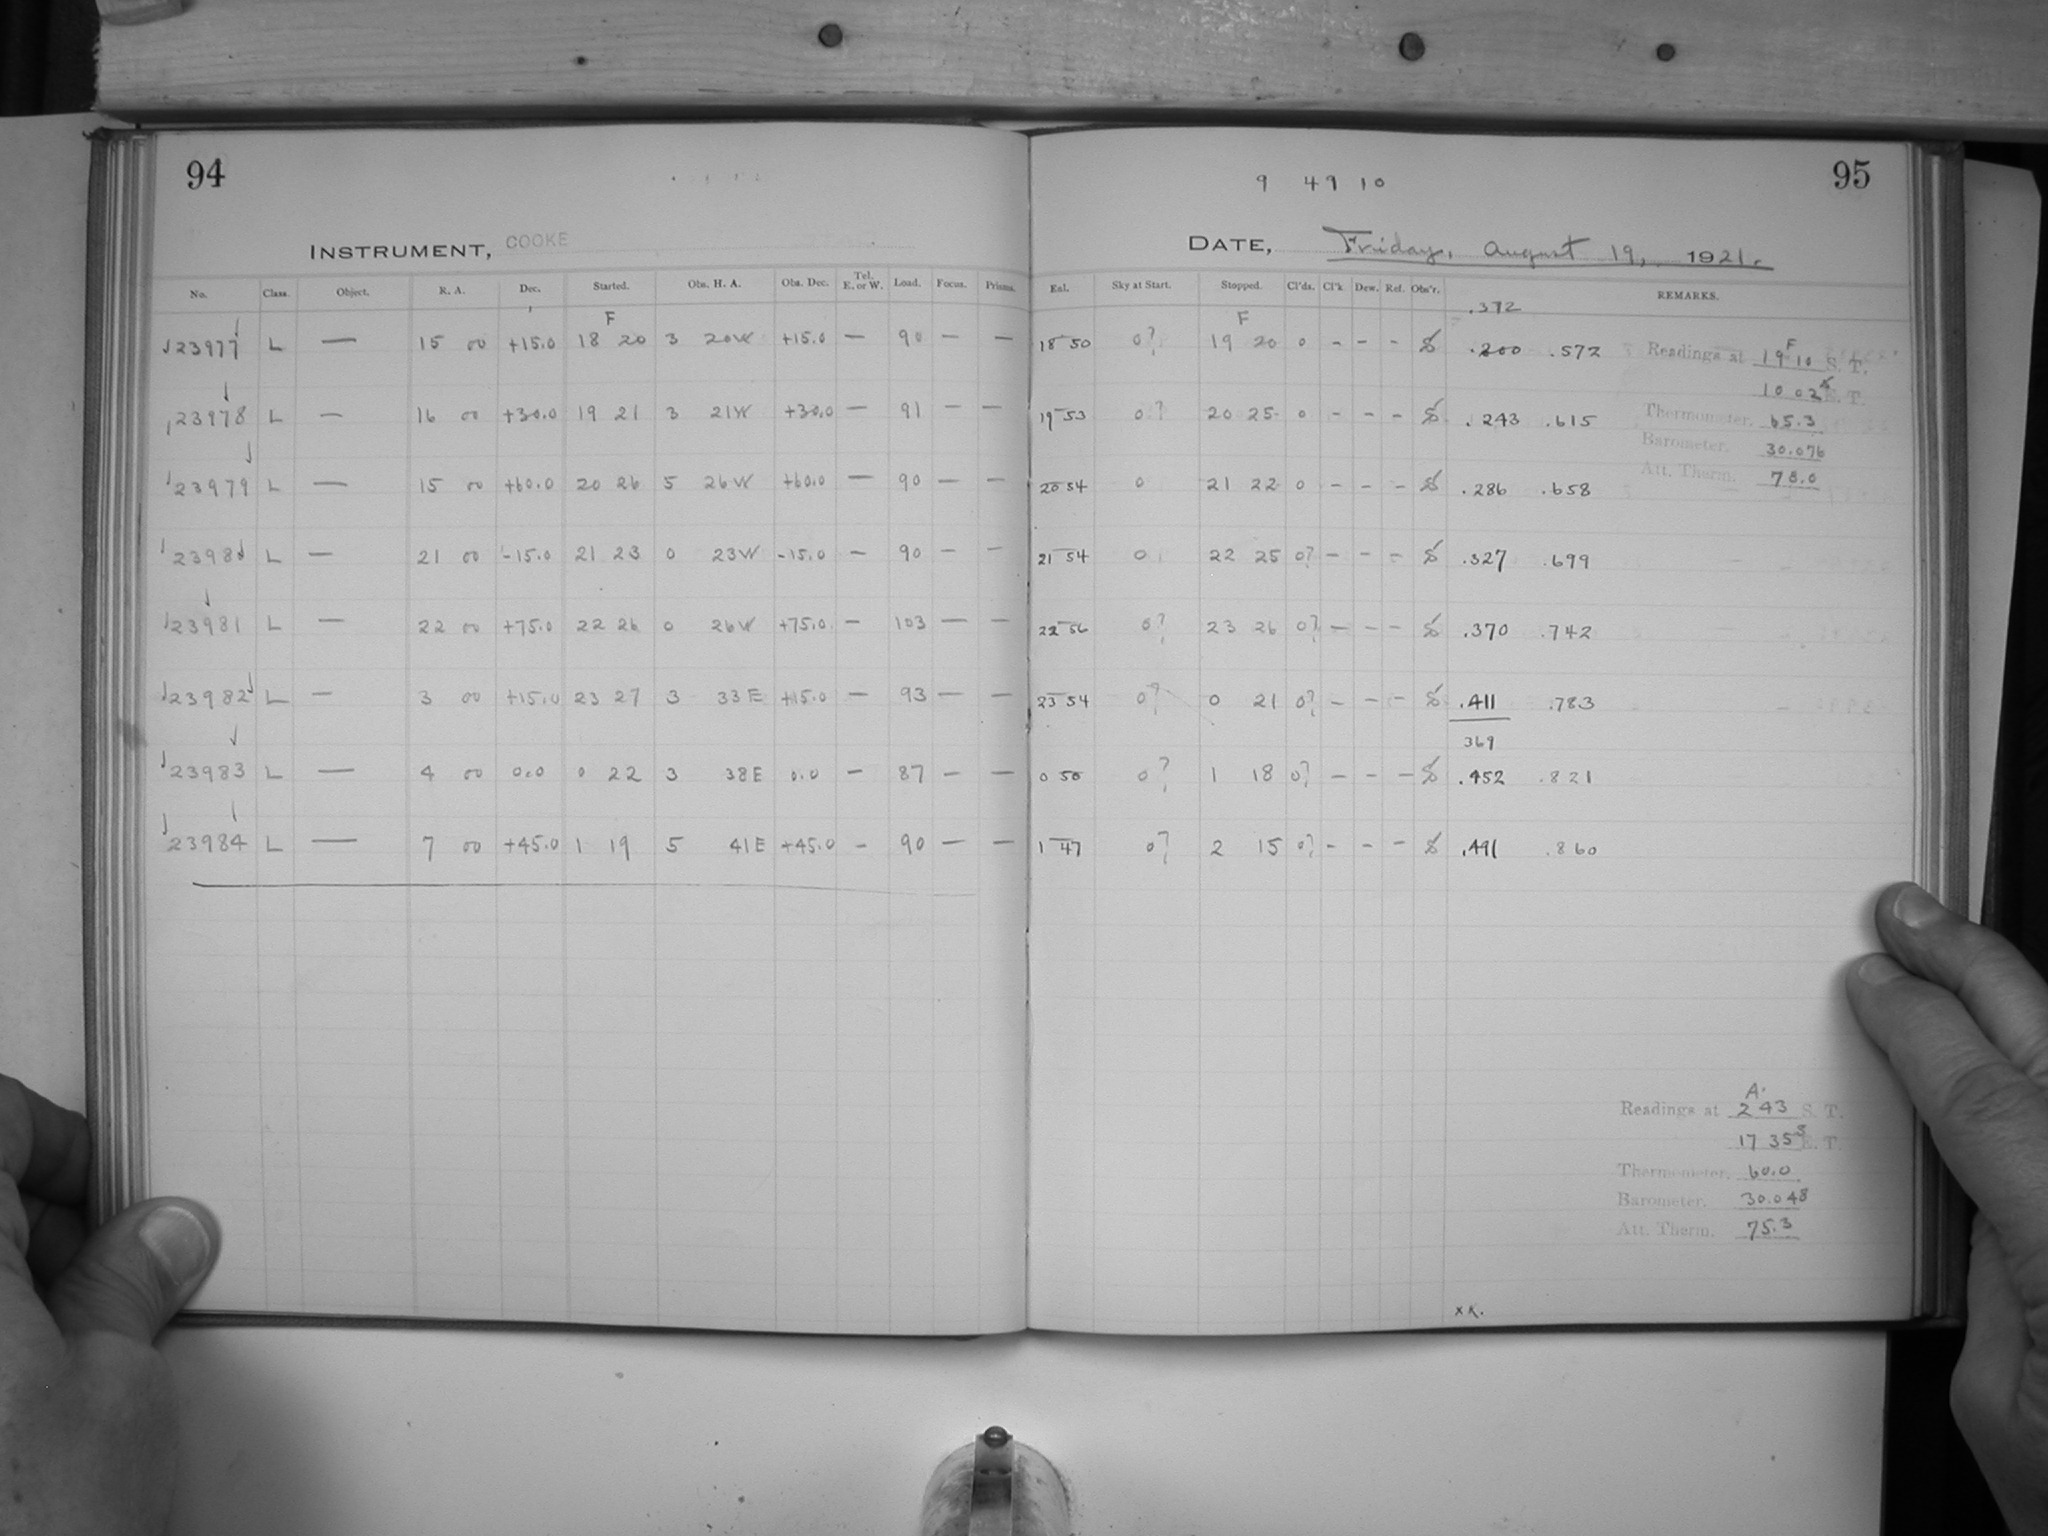 94
INSTRUMENT, COOKE
No. Class. Object. R. A. Dec. Started. Obs. H. A. Obs. Dec. Tel. E. or W. Load. Focus. Prisms.
F
23977 L — 15 00 +15.0 18 20 3 20W +15.0 — 90 — —
23978 L — 16 00 +30.0 19 21 3 21W +30.0 — 91 — —
23979 L — 15 00 +60.0 20 26 5 26W +60.0 — 90 — —
23980 L — 21 00 -15.0 21 23 0 23W -15.0 — 90 — —
23981 L — 22 00 +75.0 22 26 0 26W +75.0 — 103 — —
23982 L — 3 00 +15.0 23 27 3 33E +15.0 — 93 — —
23983 L — 4 00 0.0 0 22 3 38E 0.0 — 87 — —
23984 L — 7 00 +45.0 1 19 5 41E +45.0 — 90 — —
9 49 10
95
DATE, Friday, August 19, 1921.
Exl. Sky at Start. Stopped. Cl'ds. Cl'k. Dew. Ref. Obs'r. REMARKS.
.372
F
18 50 0? 19 20 0 - - - .200 .572
19 53 0? 20 25 0 - - - .243 .615
20 54 0 21 22 0 - - - .286 .658
21 54 0 22 25 0? - - - .327 .699
22 56 0? 23 26 0? - - - .370 .742
23 54 0? 0 21 0? - - - .411 .783
369
0 50 0? 1 18 0? - - - .452 .821
1 47 0? 2 15 0? - - - .491 .860
F
Readings at 19 10 S. T.
10 02 E. T.
Thermometer. 65.3
Barometer. 30.076
Att. Therm. 78.0
A.
Readings at 2 43 S. T.
17 35 E. T.
Thermometer. 60.0
Barometer. 30.048
Att. Therm. 75.3
X K.